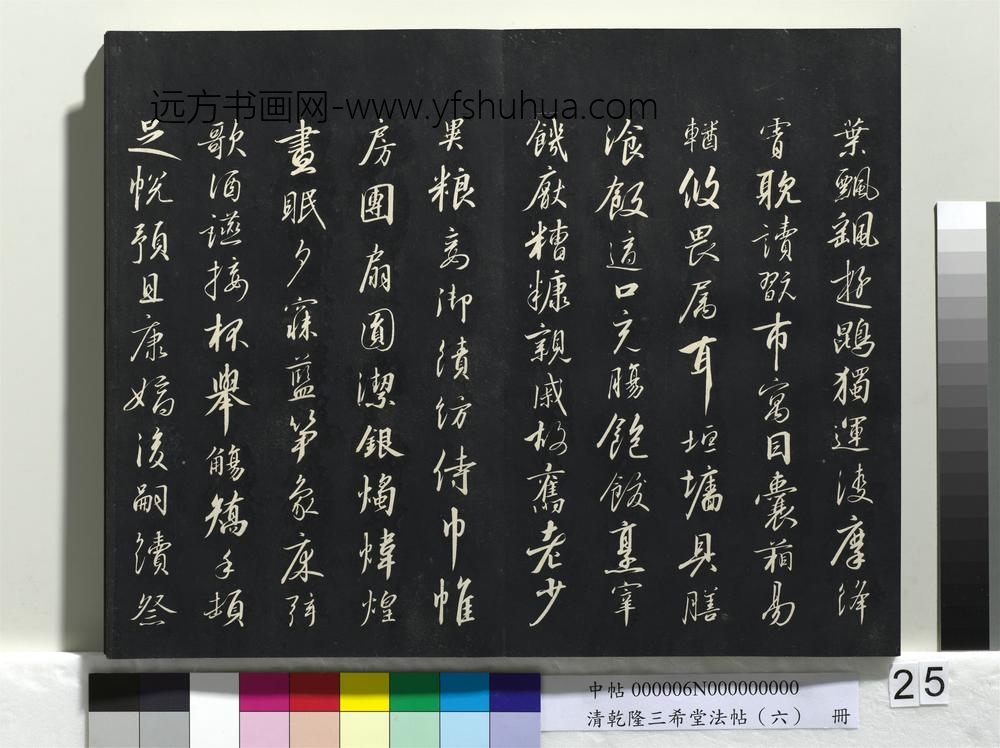 远方书画网-www.yfshuhua.com
葉飄颻遊鵾獨運凌摩絳
霄耽讀翫市寓目囊箱易
輶攸畏属耳垣墻具膳
湌飯適口充腸飽飫烹宰
饑厭糟糠親戚故舊老少
異粮妾御績紡侍巾帷
房團扇圓潔銀燭煒煌
晝眠夕寐藍笋象床弦
歌酒讌接杯舉觴矯手頓
足悅豫且康嫡後嗣續祭
中帖 000006N000000000
清乾隆三希堂法帖（六） 冊
25